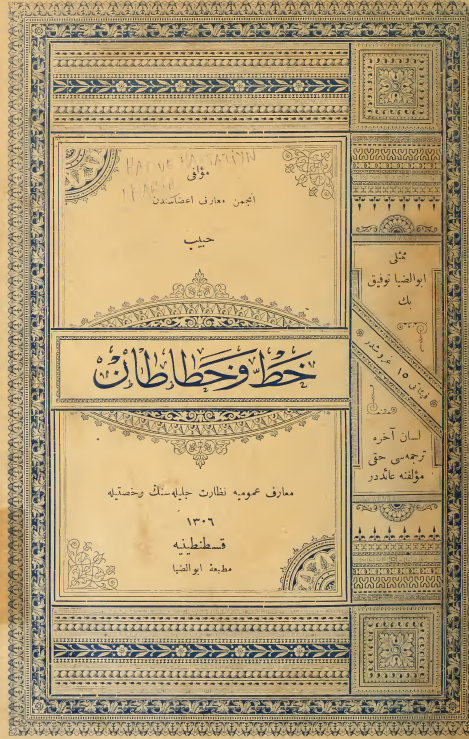 HAT VE HATTATIYN
HABIB
مؤلفی
انجمن معارف اعضاسندن
حبیب
خط و خطاطان
معارف عمومیه نظارت جلیله‌سنك رخصتیله
١٣٠٦
قسطنطینیه
مطبعهٔ ابوالضیا
ممثلی
ابوالضیا توفیق
بك
فیئاتی ١٥ غروشدر
لسان آخره
ترجمه‌سی حقی
مؤلفنه عائددر